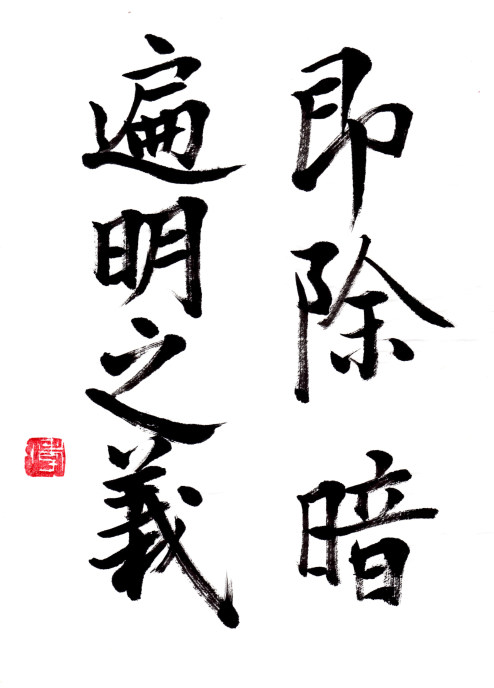 即除暗
遍明之義